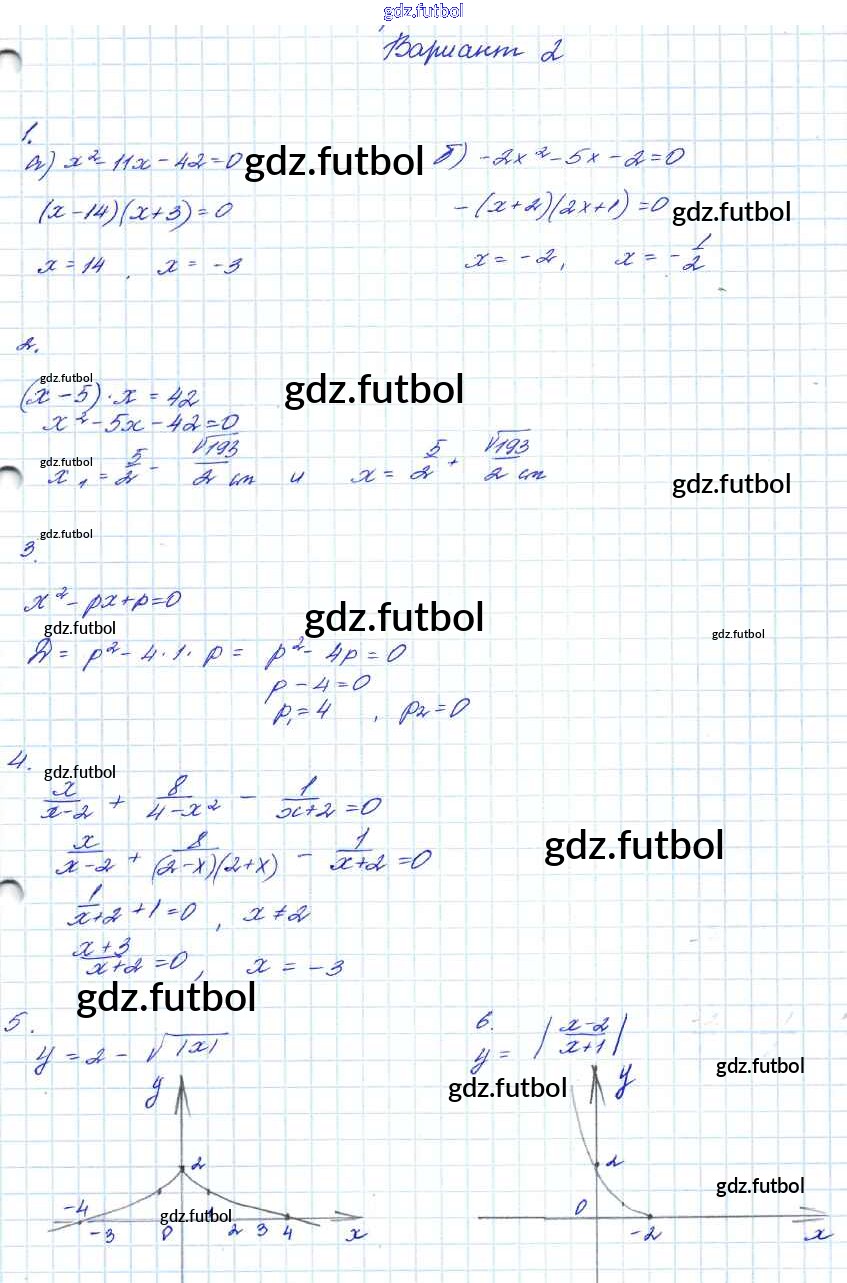 gdz.futbol
Вариант 2
1.
а) x² - 11x - 42 = 0 gdz.futbol б) -2x² - 5x - 2 = 0
(x - 14)(x + 3) = 0 -(x + 2)(2x + 1) = 0 gdz.futbol
x = 14, x = -3 x = -2, x = -1/2
2.
gdz.futbol
(x - 5) · x = 42 gdz.futbol
x² - 5x - 42 = 0
gdz.futbol
x₁ = 5/2 - √193/2 cm и x = 5/2 + √193/2 cm gdz.futbol
gdz.futbol
3.
x² - px + p = 0 gdz.futbol
gdz.futbol gdz.futbol
D = p² - 4 · 1 · p = p² - 4p = 0
p - 4 = 0
p₁ = 4, p₂ = 0
4.
gdz.futbol
x/(x-2) + 8/(4-x²) - 1/(x+2) = 0
x/(x-2) + 8/((2-x)(2+x)) - 1/(x+2) = 0 gdz.futbol
1/(x+2) + 1 = 0, x ≠ 2
(x+3)/(x+2) = 0, x = -3
gdz.futbol
5.
y = 2 - √|x|
y
2
-4 -3 0 1 2 3 4 x
gdz.futbol
6.
y = |(x-2)/(x+1)|
gdz.futbol y gdz.futbol
2
gdz.futbol
0 -2 x